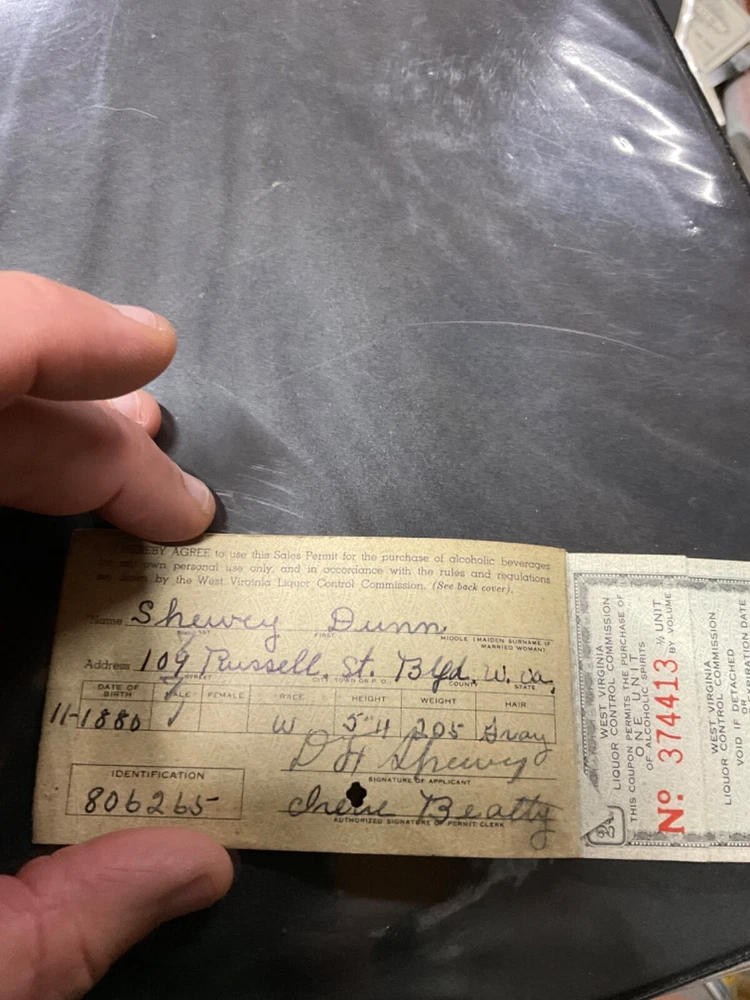 HEREBY AGREE to use this Sales Permit for the purchase of alcoholic beverages
own personal use only, and in accordance with the rules and regulations
by the West Virginia Liquor Control Commission. (See back cover).
Name Shewey Dunn
FIRST MIDDLE (MAIDEN SURNAME IF MARRIED WOMAN)
Address 109 Russell St. Blfd. W. Va.
STREET CITY, TOWN OR P.O. COUNTY STATE
DATE OF BIRTH MALE FEMALE RACE HEIGHT WEIGHT HAIR
11-1880 W 5"11 205 Gray
D H Shewey
SIGNATURE OF APPLICANT
IDENTIFICATION
806265
Irene Beatty
AUTHORIZED SIGNATURE OF PERMIT CLERK
WEST VIRGINIA
LIQUOR CONTROL COMMISSION
THIS COUPON PERMITS THE PURCHASE OF
ONE UNIT
OF ALCOHOLIC SPIRITS
½ UNIT
BY VOLUME
No 374413
WEST VIRGINIA
LIQUOR CONTROL COMMISSION
VOID IF DETACHED